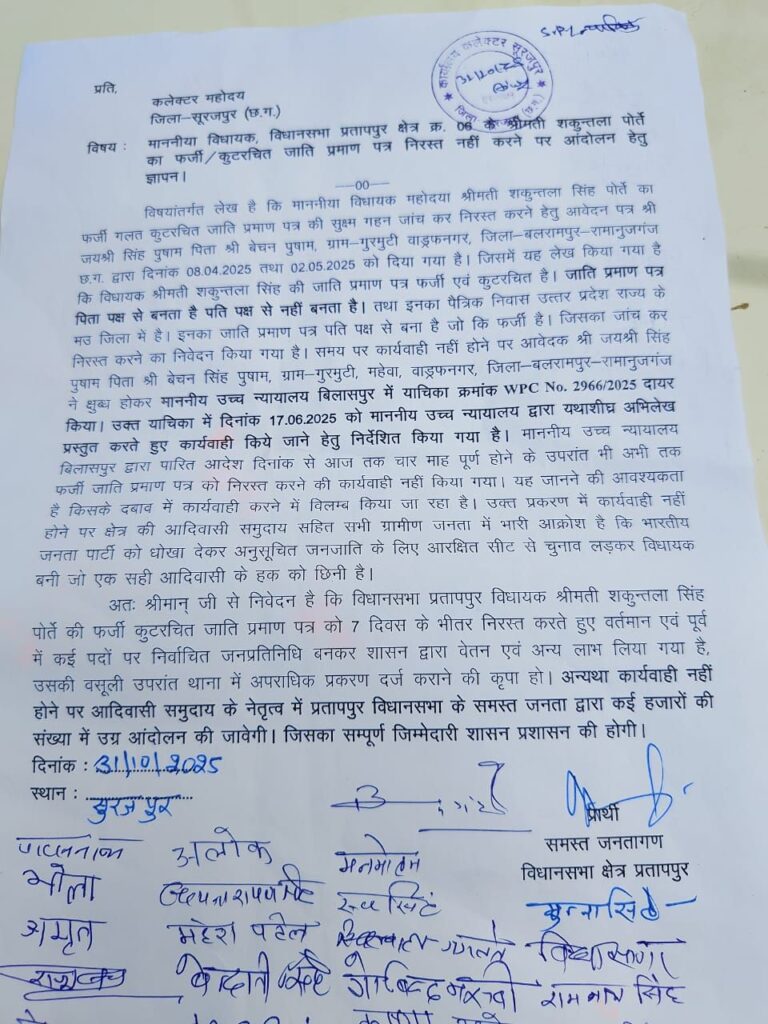 प्रति,
कलेक्टर महोदय
जिला–सूरजपुर (छ.ग.)
कार्यालय कलेक्टर सूरजपुर
विषय : माननीया विधायक, विधानसभा प्रतापपुर क्षेत्र क्र. 06 के श्रीमती शकुन्तला पोर्ते
का फर्जी/कुटरचित जाति प्रमाण पत्र निरस्त नहीं करने पर आंदोलन हेतु
ज्ञापन।
—00—
विषयांतर्गत लेख है कि माननीया विधायक महोदया श्रीमती शकुन्तला सिंह पोर्ते का
फर्जी गलत कुटरचित जाति प्रमाण पत्र की सुक्ष्म गहन जांच कर निरस्त करने हेतु आवेदन पत्र श्री
जयश्री सिंह पुषाम पिता श्री बेचन पुषाम, ग्राम–गुरमुटी वाड्रफनगर, जिला–बलरामपुर–रामानुजगंज
छ.ग. द्वारा दिनांक 08.04.2025 तथा 02.05.2025 को दिया गया है। जिसमें यह लेख किया गया है
कि विधायक श्रीमती शकुन्तला सिंह की जाति प्रमाण पत्र फर्जी एवं कुटरचित है। जाति प्रमाण पत्र
पिता पक्ष से बनता है पति पक्ष से नहीं बनता है। तथा इनका पैत्रिक निवास उत्तर प्रदेश राज्य के
मउ जिला में है। इनका जाति प्रमाण पत्र पति पक्ष से बना है जो कि फर्जी है। जिसका जांच कर
निरस्त करने का निवेदन किया गया है। समय पर कार्यवाही नहीं होने पर आवेदक श्री जयश्री सिंह
पुषाम पिता श्री बेचन सिंह पुषाम, ग्राम–गुरमुटी, महेवा, वाड्रफनगर, जिला–बलरामपुर–रामानुजगंज
ने क्षुब्ध होकर माननीय उच्च न्यायालय बिलासपुर में याचिका क्रमांक WPC No. 2966/2025 दायर
किया। उक्त याचिका में दिनांक 17.06.2025 को माननीय उच्च न्यायालय द्वारा यथाशीघ्र अभिलेख
प्रस्तुत करते हुए कार्यवाही किये जाने हेतु निर्देशित किया गया है। माननीय उच्च न्यायालय
बिलासपुर द्वारा पारित आदेश दिनांक से आज तक चार माह पूर्ण होने के उपरांत भी अभी तक
फर्जी जाति प्रमाण पत्र को निरस्त करने की कार्यवाही नहीं किया गया। यह जानने की आवश्यकता
है किसके दबाव में कार्यवाही करने में विलम्ब किया जा रहा है। उक्त प्रकरण में कार्यवाही नहीं
होने पर क्षेत्र की आदिवासी समुदाय सहित सभी ग्रामीण जनता में भारी आक्रोश है कि भारतीय
जनता पार्टी को धोखा देकर अनुसूचित जनजाति के लिए आरक्षित सीट से चुनाव लड़कर विधायक
बनी जो एक सही आदिवासी के हक को छिनी है।
अतः श्रीमान् जी से निवेदन है कि विधानसभा प्रतापपुर विधायक श्रीमती शकुन्तला सिंह
पोर्ते की फर्जी कुटरचित जाति प्रमाण पत्र को 7 दिवस के भीतर निरस्त करते हुए वर्तमान एवं पूर्व
में कई पदों पर निर्वाचित जनप्रतिनिधि बनकर शासन द्वारा वेतन एवं अन्य लाभ लिया गया है,
उसकी वसूली उपरांत थाना में अपराधिक प्रकरण दर्ज कराने की कृपा हो। अन्यथा कार्यवाही नहीं
होने पर आदिवासी समुदाय के नेतृत्व में प्रतापपुर विधानसभा के समस्त जनता द्वारा कई हजारों की
संख्या में उग्र आंदोलन की जावेगी। जिसका सम्पूर्ण जिम्मेदारी शासन प्रशासन की होगी।
दिनांक : 31/10/2025
स्थान : सुरजपुर
प्रार्थी
समस्त जनतागण
विधानसभा क्षेत्र प्रतापपुर
अलोक मनमोहन
भोला मुन्ना सिंह
अमृत महेश पटेल
रामनाथ सिंह